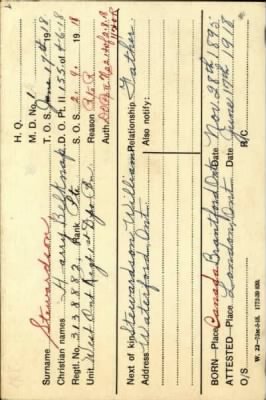 H. Q.
M. D. No. 1
Surname Stewardson
T. O. S. June 17th 1918
Christian names Harry Belknap
D. O. Pt. II 155 of 4-6-18
Regtl. No. 3138882 Rank Pte
S. O. S. 2. 9. 1918
Unit West Ont Regt, 1st Depo Bn
Reason
Auth.
Next of kin Stewardson, William Relationship Father
Address Waterford, Ont
Also notify:
BORN—Place Canada, Brantford, Ont Date Nov. 28th 1895
ATTESTED—Place London, Ont Date June 17th 1918
O/S
R/C